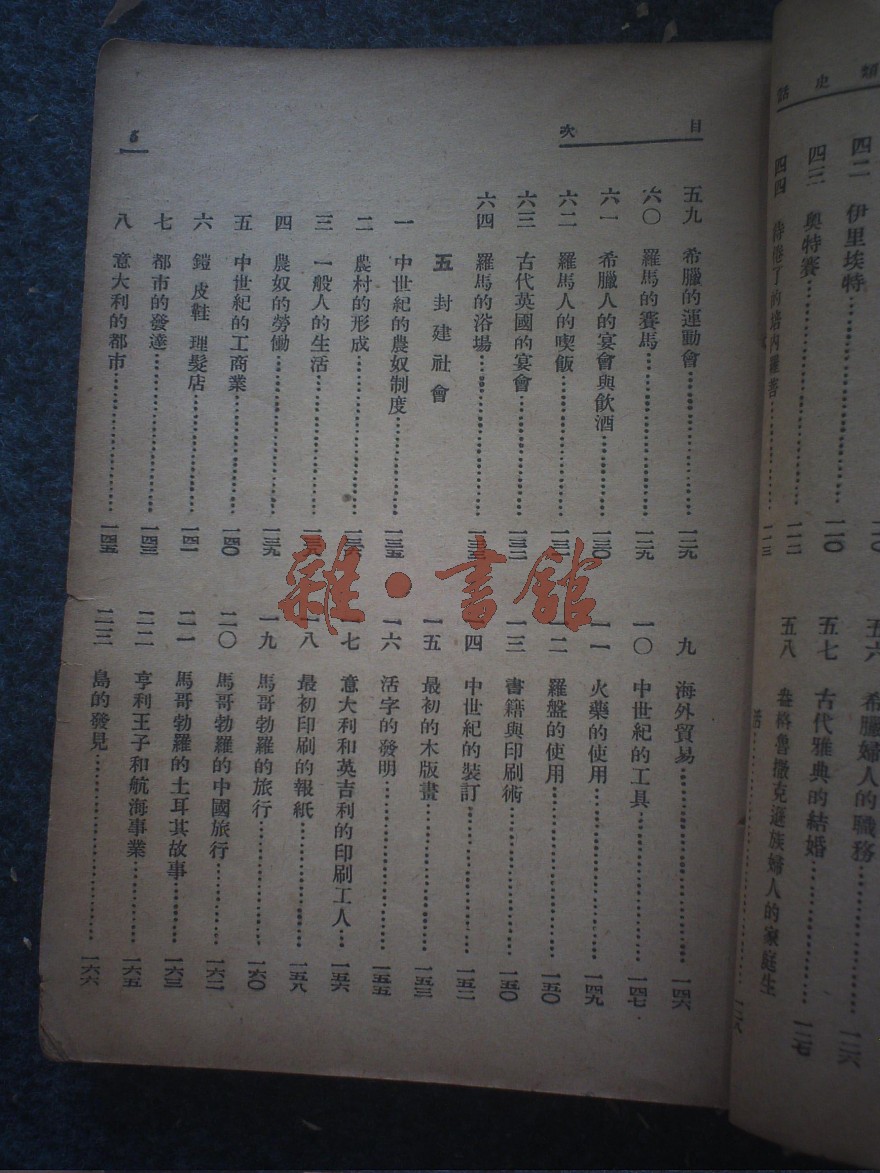 類史話
四二 伊里埃特 一一〇
四三 奧特賽 一一〇
四四 一一二
五六 希臘婦人的職務 一二六
五七 古代雅典的結婚 一二七
五八 盎格魯撒克遜族婦人的家庭生
活 一二八
目次
5
五九 希臘的運動會 一二九
六〇 羅馬的賽馬 一二九
六一 希臘人的宴會與飲酒 一三〇
六二 羅馬人的喫飯 一三一
六三 古代英國的宴會 一三二
六四 羅馬的浴場 一三三
五 封建社會
一 中世紀的農奴制度 一三五
二 農村的形成 一三六
三 一般人的生活
四 農奴的勞働 一三九
五 中世紀的工商業 一四〇
六 鎧 皮鞋 理髮店 一四一
七 都市的發達 一四三
八 意大利的都市 一四五
九 海外貿易 一四六
一〇 中世紀的工具 一四七
一一 火藥的使用 一四九
一二 羅盤的使用 一五〇
一三 書籍與印刷術 一五〇
一四 中世紀的裝訂 一五二
一五 最初的木版畫 一五三
一六 活字的發明 一五五
一七 意大利和英吉利的印刷工人 一五六
一八 最初印刷的報紙 一五八
一九 馬哥勃羅的旅行 一六〇
二〇 馬哥勃羅的中國旅行 一六二
二一 馬哥勃羅的土耳其故事 一六三
二二 亨利王子和航海事業 一六五
二三 島的發見 一六六
雜·書館